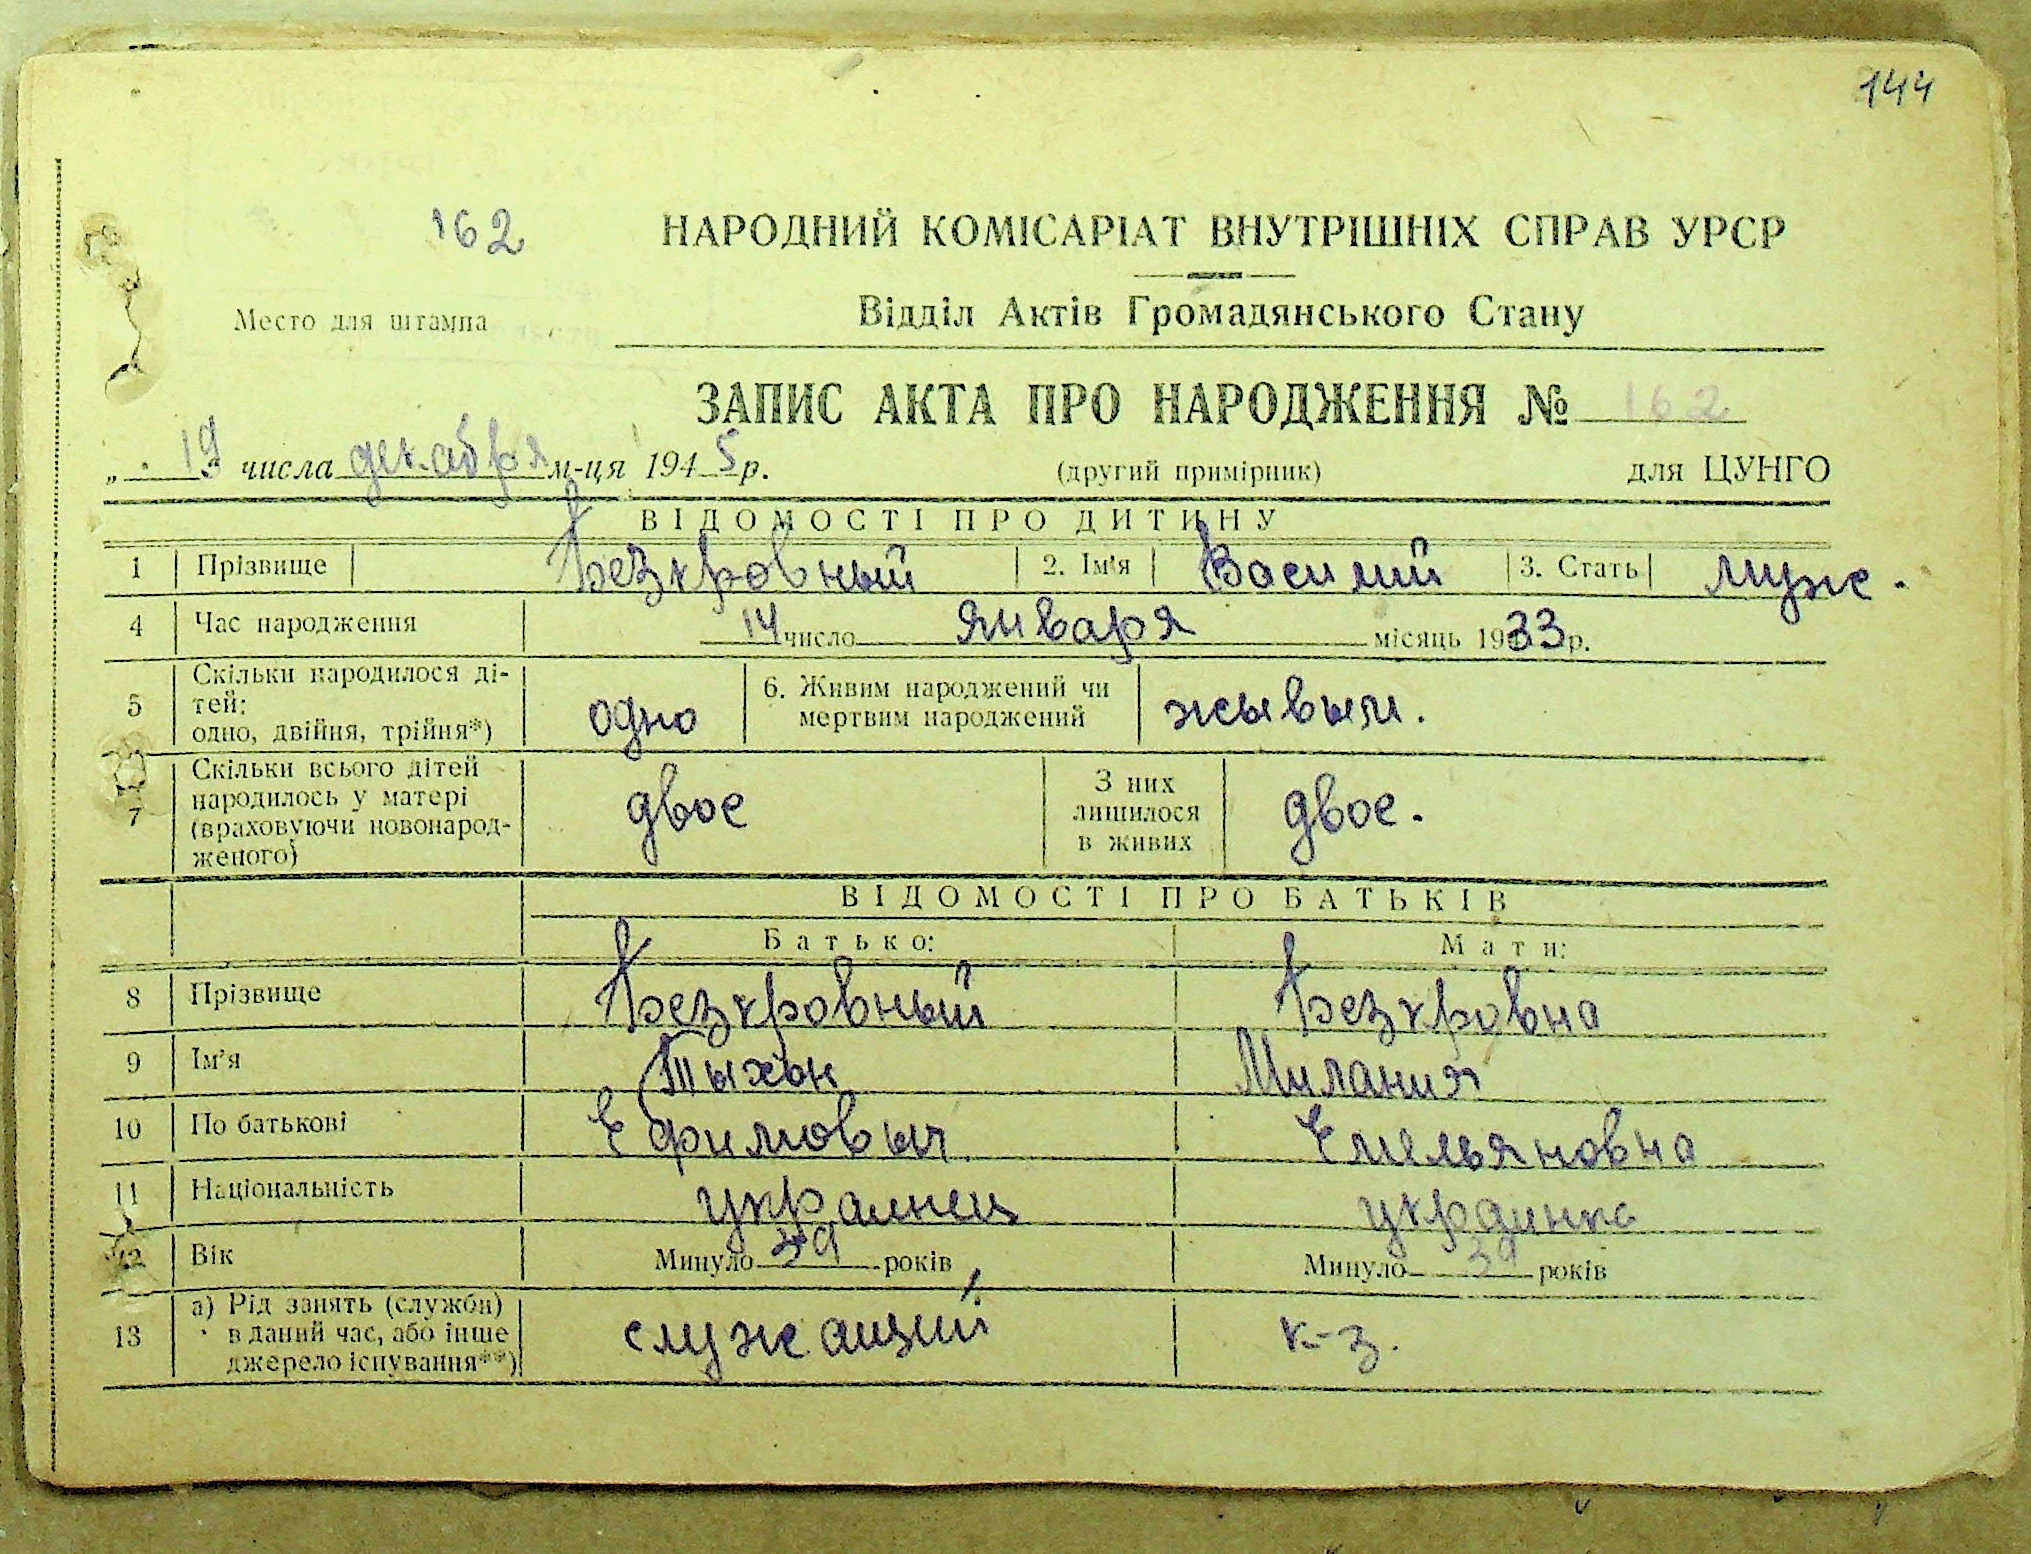 144
162 НАРОДНИЙ КОМІСАРІАТ ВНУТРІШНІХ СПРАВ УРСР
Место для штампа
Відділ Актів Громадянського Стану
ЗАПИС АКТА ПРО НАРОДЖЕННЯ № 162
„ 19 числа декабря м-ця 1945 р. (другий примірник) для ЦУНГО
ВІДОМОСТІ ПРО ДИТИНУ
1 Прізвище Безкровный 2. Ім'я Василий 3. Стать муж.
4 Час народження 14 число января місяць 1933 р.
5 Скільки народилося ді-
тей:
одно, двійня, трійня*) одно 6. Живим народжений чи
мертвим народжений жывым.
7 Скільки всього дітей
народилось у матері
(враховуючи новонарод-
женого) двое З них
лишилося
в живих двое.
ВІДОМОСТІ ПРО БАТЬКІВ
Батько: Мати:
8 Прізвище Безкровный Безкровна
9 Ім'я Тыхон Милания
10 По батькові Ефимовыч Емельяновна
11 Національність украинец украинка
12 Вік Минуло 39 років Минуло 39 років
13 а) Рід занять (служби)
в даний час, або інше
джерело існування**) служащий к-з.